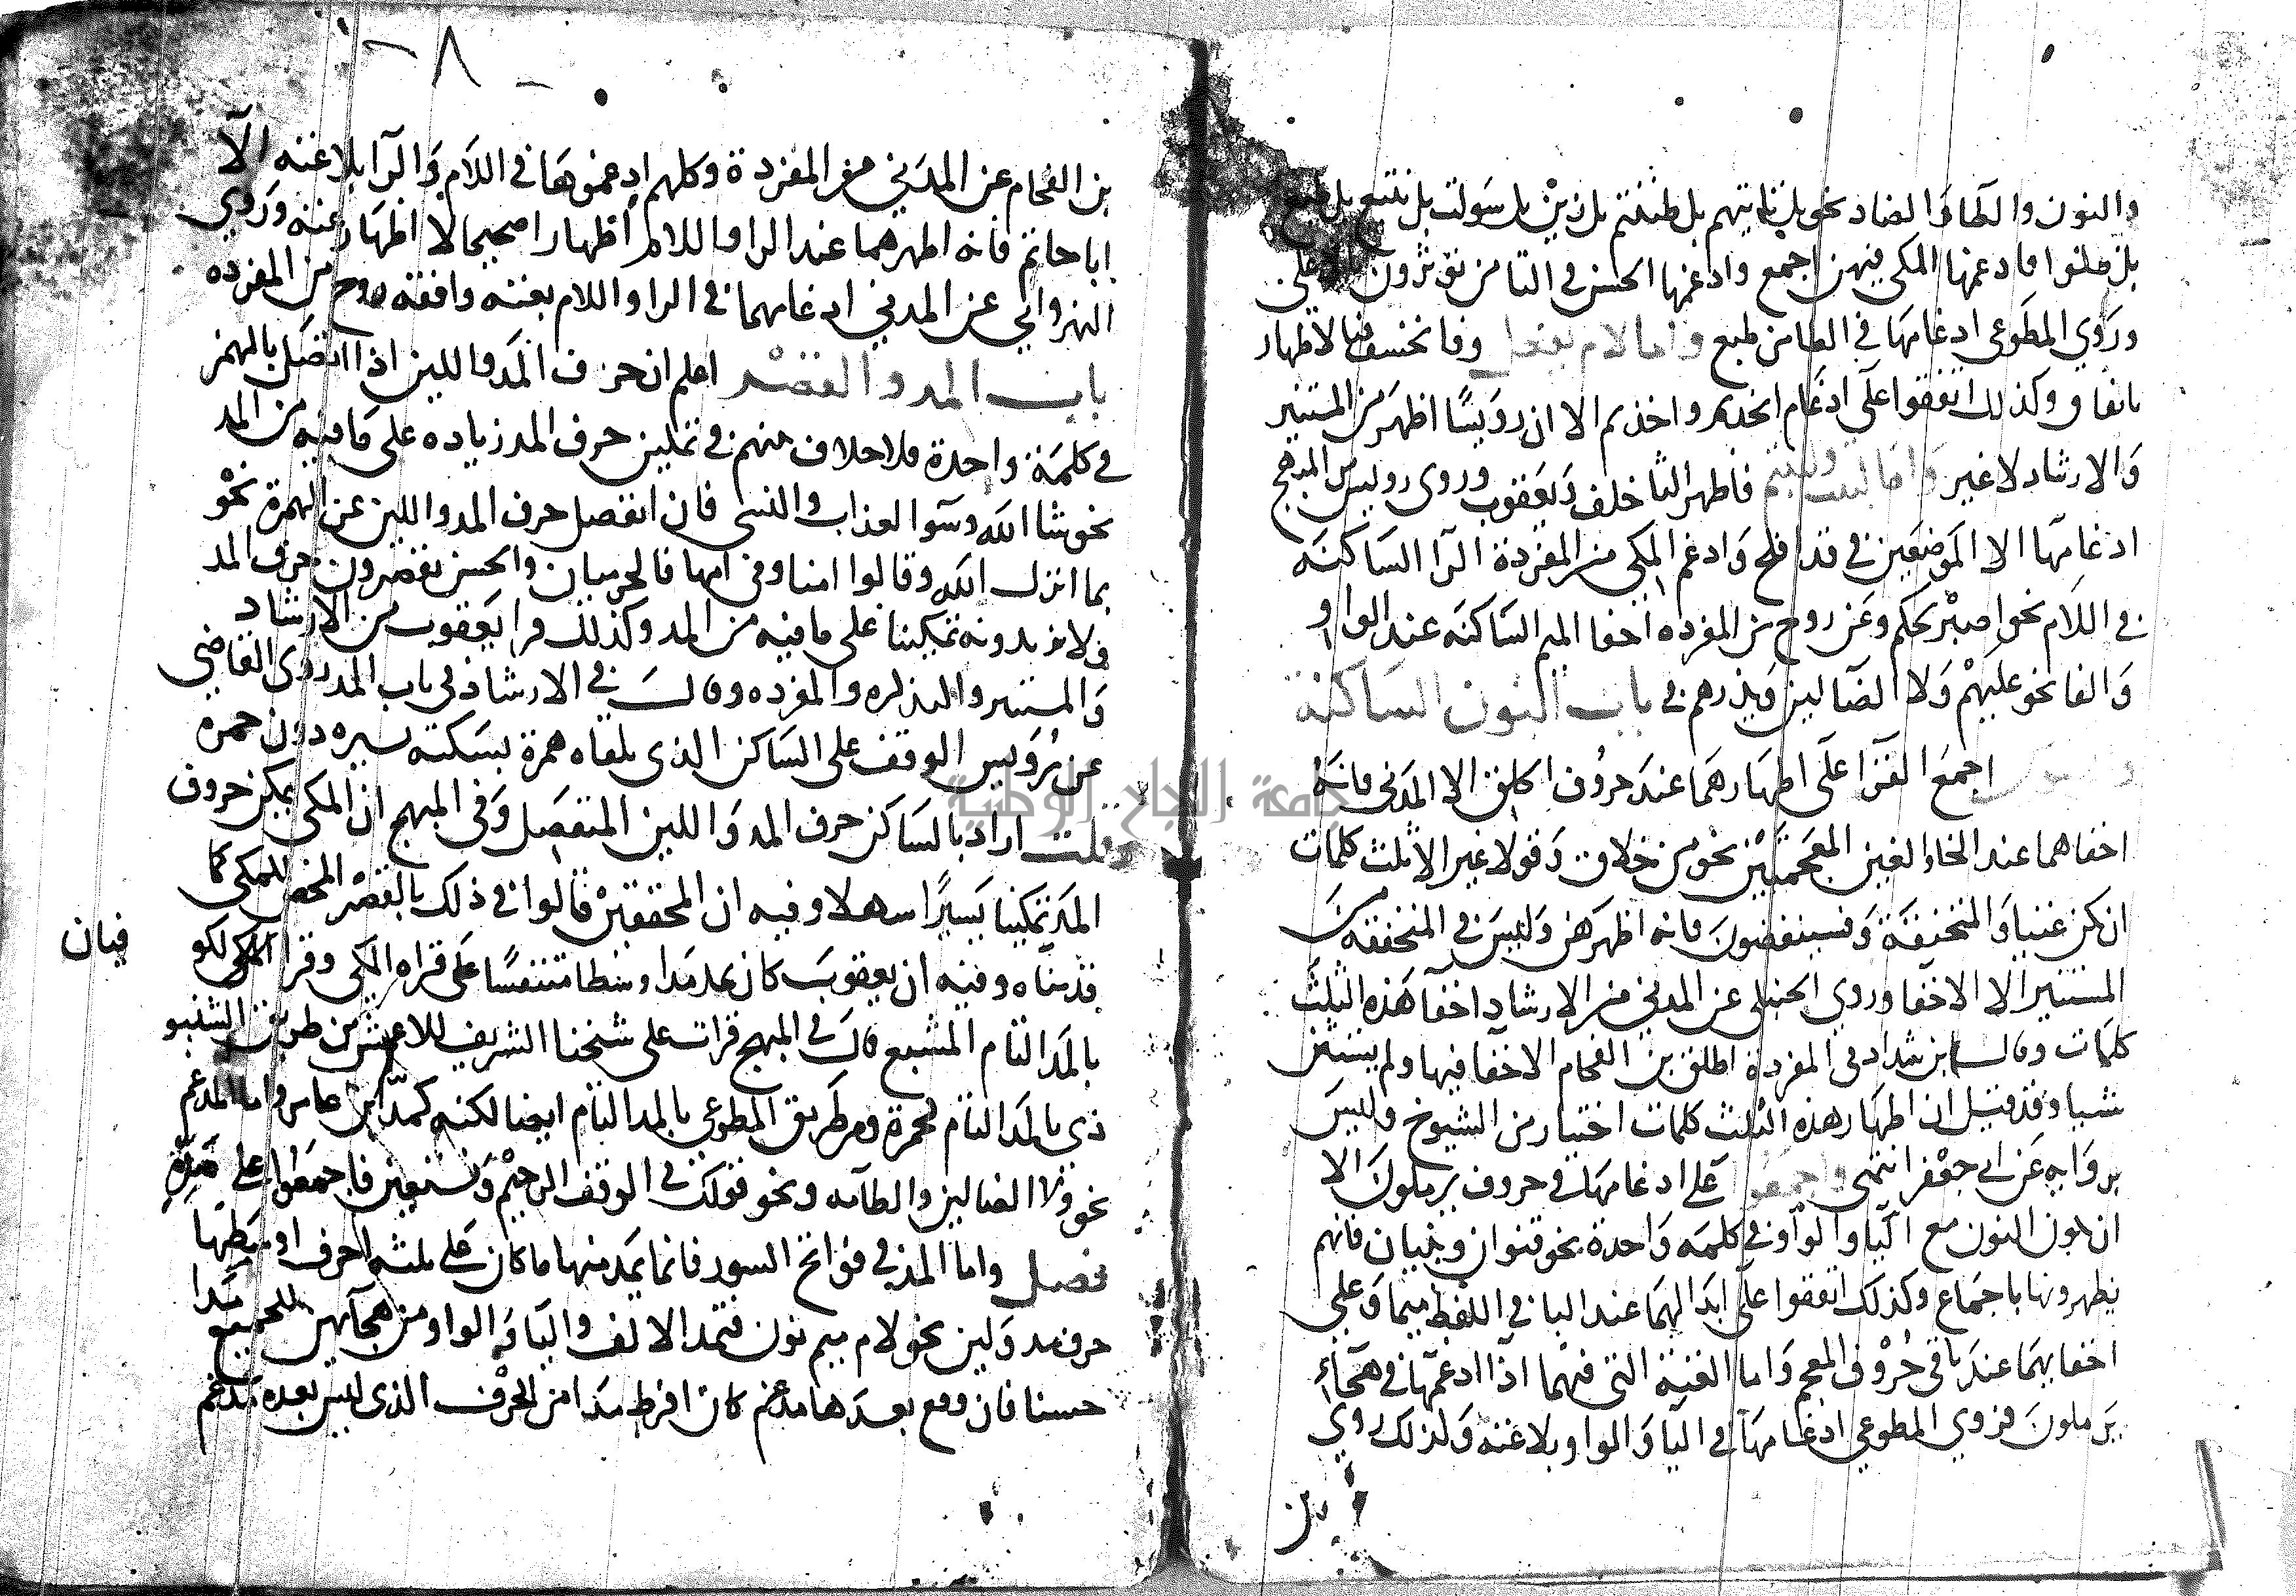 والنون والطا والضاد نحو بل تاتيهم بل ظننتم بل زين بل سولت بل نتبع بل طبع
بل ضلوا فادغمها المكي فيهن اجمع وادغمها الحسن في التا من تؤثرون
وروي المطوعي ادغامها في الطا من طبع واما لام يفعل وفا نخسف فبالاظهار
باتفاق وكذلك اتفقوا على ادغام اتخذتم واخذتم الا ان رويسا اظهر من المستنير
والارشاد لا غير واما لبثت ولبثتم فاظهر الثا خلف ويعقوب وروى رويس من المبهج
ادغامها الا الموضعين في قد افلح وادغم المكي من المفردة الرا الساكنه
في اللام نحو اصبر لحكم وعن روح من المفرده اخفا الميم الساكنه عند الواو
والفا نحو عليهم ولا الضالين ويذرهم في باب النون الساكنة
اجمع القرا على اظهارهما عند حروف الحلق الا المدني فانه
اخفاهما عند الخا والغين المعجمتين نحو من خلاق وقولا غير الا ثلث كلمات
ان يكن غنيا والمنخنقة وفسينغضون فانه اظهرهن وليس في المنخنقه من
المستنير الا الاخفا وروي الحنبلى عن المدني من الارشاد اخفا هذه الثلث
كلمات وقال ابن شداد في المفردة اطلق بن الفحام الاخفا فيها ولم يستثن
شيا وقد قيل ان اظهار هذه الثلث كلمات اختيار من الشيوخ وليس
بروايه عن ابي جعفر انتهى واجمعوا على ادغامها في حروف يرملون الا
ان تكون النون مع اليا والواو في كلمه واحدة نحو قنوان وبنيان فانهم
يظهرونها باجماع وكذلك اتفقوا على ابدالهما عند البا في اللفظ ميما وعلى
اخفايهما عند باقي حروف المعجم واما الغنة التي فيهما اذا ادغمتها في هجاء
يرملون فروي المطوعي ادغامها في اليا والواو بلا غنه وكذلك روي
بن
بن الفحام عن المدني من المفردة وكلهم ادغموها في اللام والرا بلا غنه الا
ابا حاتم فانه اظهرهما عند الرا واللام اظهارا صحيحا لا اظهار غنه وروي
النهرواني عن المدني ادغامهما في الرا واللام بغنه وافقه روح من المفرده
باب المد والقصر اعلم ان حرف المد واللين اذا اتصل بالهمز
في كلمة واحدة فلا خلاف عنهم في تمكين حرف المد زياده على ما فيه من المد
نحو شا الله وسوا العذاب والنسي فان انفصل حرف المد واللين عن الهمزة نحو
بما انزل الله وقالوا امنا وفي امها فالحرميان والحسن يقصرون حرف المد
فلا يزيدونه تمكينا على ما فيه من المد وكذلك قرا يعقوب من الارشاد
والمستنير والتذكره والمفرده وقال في الارشاد في باب المد روى القاضي
عن رويس الوقف على الساكن الذى يلقاه همزة بسكته يسيره دون حمزه
وقلت اراد بالساكن حرف المد واللين المنفصل وفي المبهج ان المكى يمكن حروف
المد تمكينا يسيرا سهلا وفيه ان المحققين قالوا في ذلك بالقصر المحض للمكى كما
قدمناه وفيه ان يعقوب كان يمد مدا وسطا متنفسا على قراه المكي وقرا المكي
بالمد التام المشبع قال في المبهج قرات على شيخنا الشريف للاعمش من طريق الشنبو
ذى بالمد التام كحمزة ومن طريق المطوعي بالمد التام ايضا لكنه كمد ابن عامر واما المدغم
نحو ولا الضالين والطامه ونحو قولك في الوقف الرحيم ونستعين فاجمعوا على مده
فصل واما المد في فواتح السور فانما يمد منها ما كان على ثلثه احرف اوسطها
حرف مد ولين نحو لام ميم نون فتمد الالف واليا والواو من هجايهن للجميع مدا
حسنا فان وقع بعدها مدغم كان افرط مدا من الحرف الذى ليس بعده مدغم
فبان
جامعة النجاح الوطنية